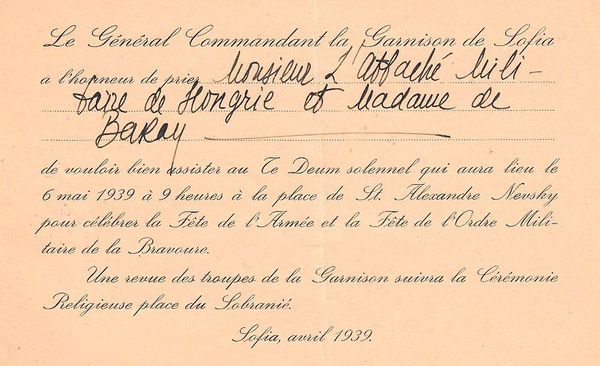 Le Général Commandant la Garnison de Sofia
a l'honneur de prier Monsieur L'Attaché Mili-
taire de Hongrie et Madame de
Bakay
de vouloir bien assister au Te Deum solennel qui aura lieu le
6 mai 1939 à 9 heures à la place de St. Alexandre Nevsky
pour célébrer la Fête de l'Armée et la Fête de l'Ordre Mili-
taire de la Bravoure.
Une revue des troupes de la Garnison suivra la Cérémonie
Religieuse place du Sobranié.
Sofia, avril 1939.